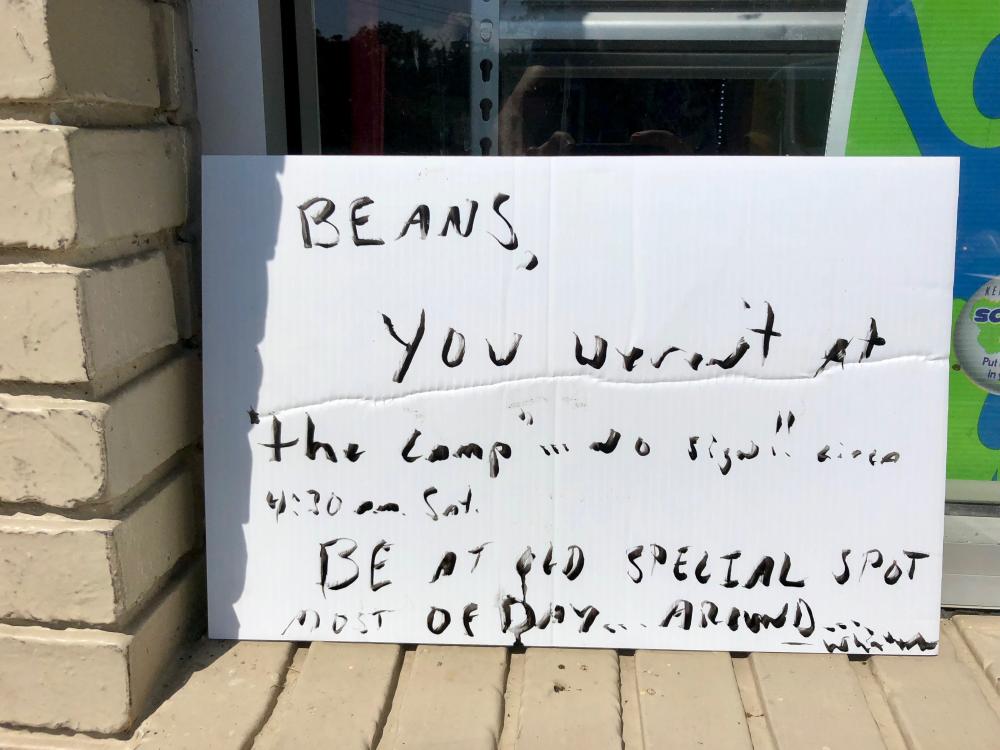 BEANS,
YOU weren't at
"the camp" ... no sign!!
4:30 am. Sat.
BE AT OLD SPECIAL SPOT
MOST OF DAY... AROUND...
KE
SC
Put
in